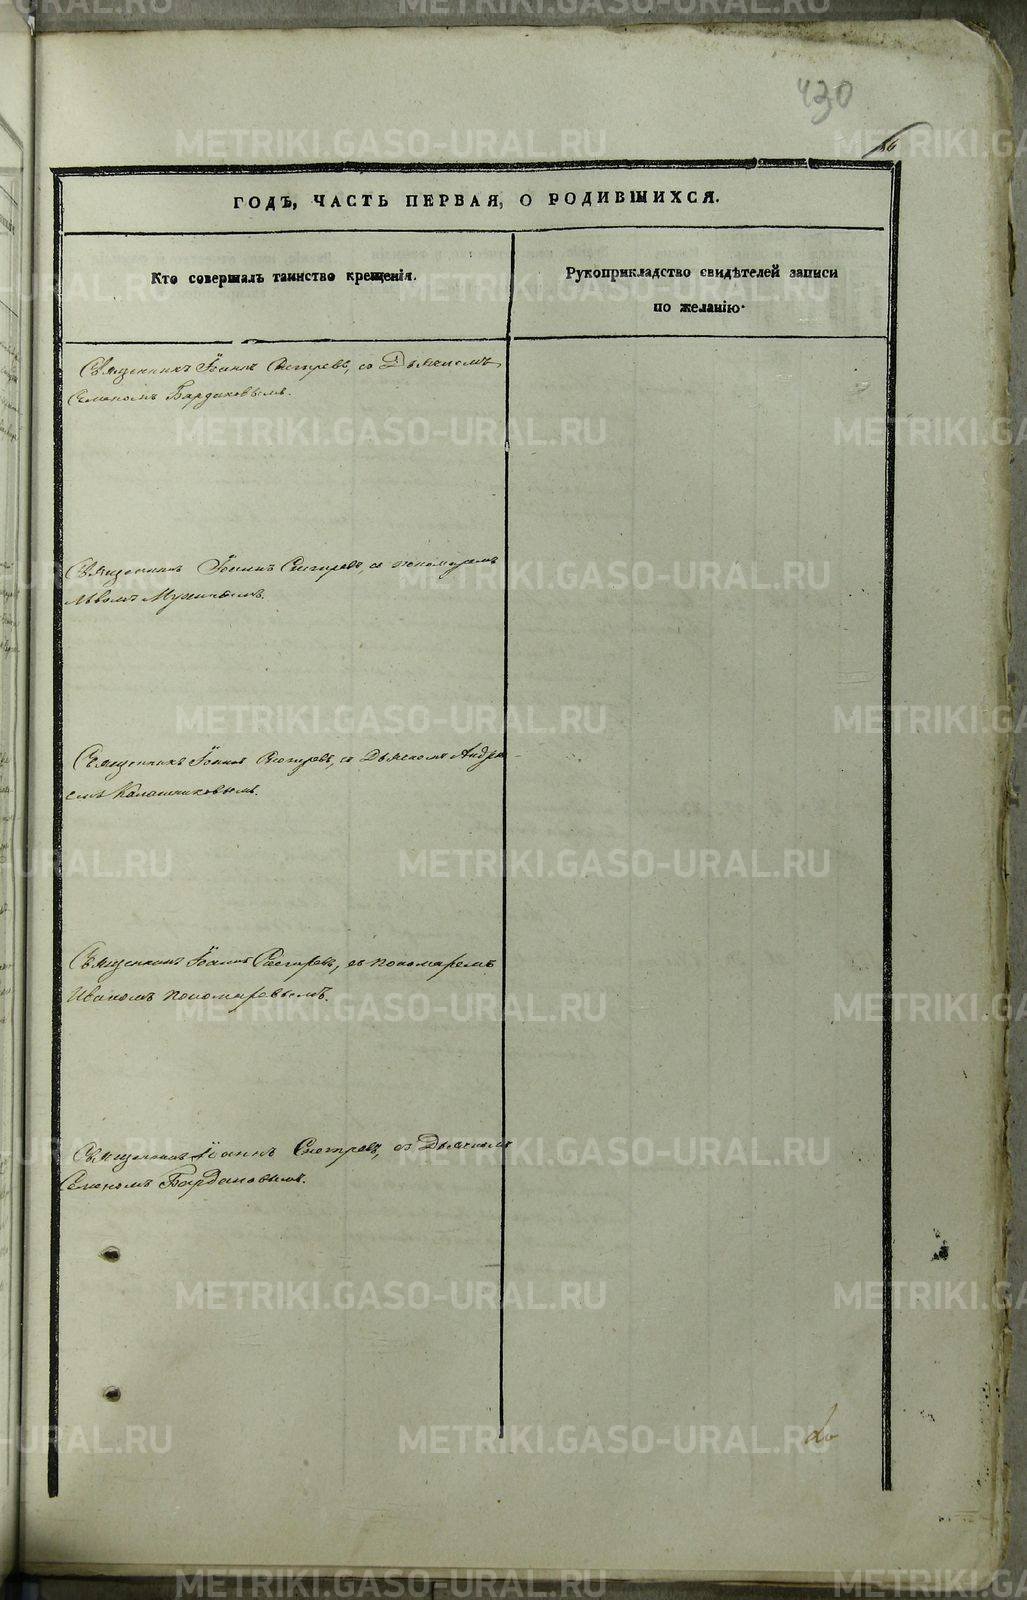 430
ГОДЪ, ЧАСТЬ ПЕРВАЯ, О РОДИВШИХСЯ.
Кто совершалъ таинство крещенія.
Рукоприкладство свидѣтелей записи
по желанію.
Священникъ Іоаннъ Снегиревъ, со Дьячкомъ
Семеномъ Бардаковымъ.
Священникъ Іоаннъ Снегиревъ, со пономаремъ
Львомъ
Священникъ Іоаннъ Снегиревъ, со Дьячкомъ Андре-
емъ Калашниковымъ.
Священникъ Іоаннъ Снегиревъ, съ пономаремъ
Иваномъ Пономаревымъ.
Священникъ Іоаннъ Снегиревъ, со Дьячкомъ
Семеномъ Бардаковымъ.
METRIKI.GASO-URAL.RU